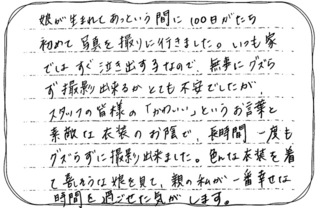 娘が生まれてあっという間に100日がたち
初めて写真を撮りに行きました。いつも家
ではすぐ泣き出す子なので、無事にグズら
ず撮影出来るかとても不安でしたが、
スタッフの皆様の「かわいい」というお言葉と
素敵な衣装のお陰で、長時間一度も
グズらずに撮影出来ました。色んな衣装を着
て喜そうな娘を見て、親の私が一番幸せな
時間を過ごせた気がします。